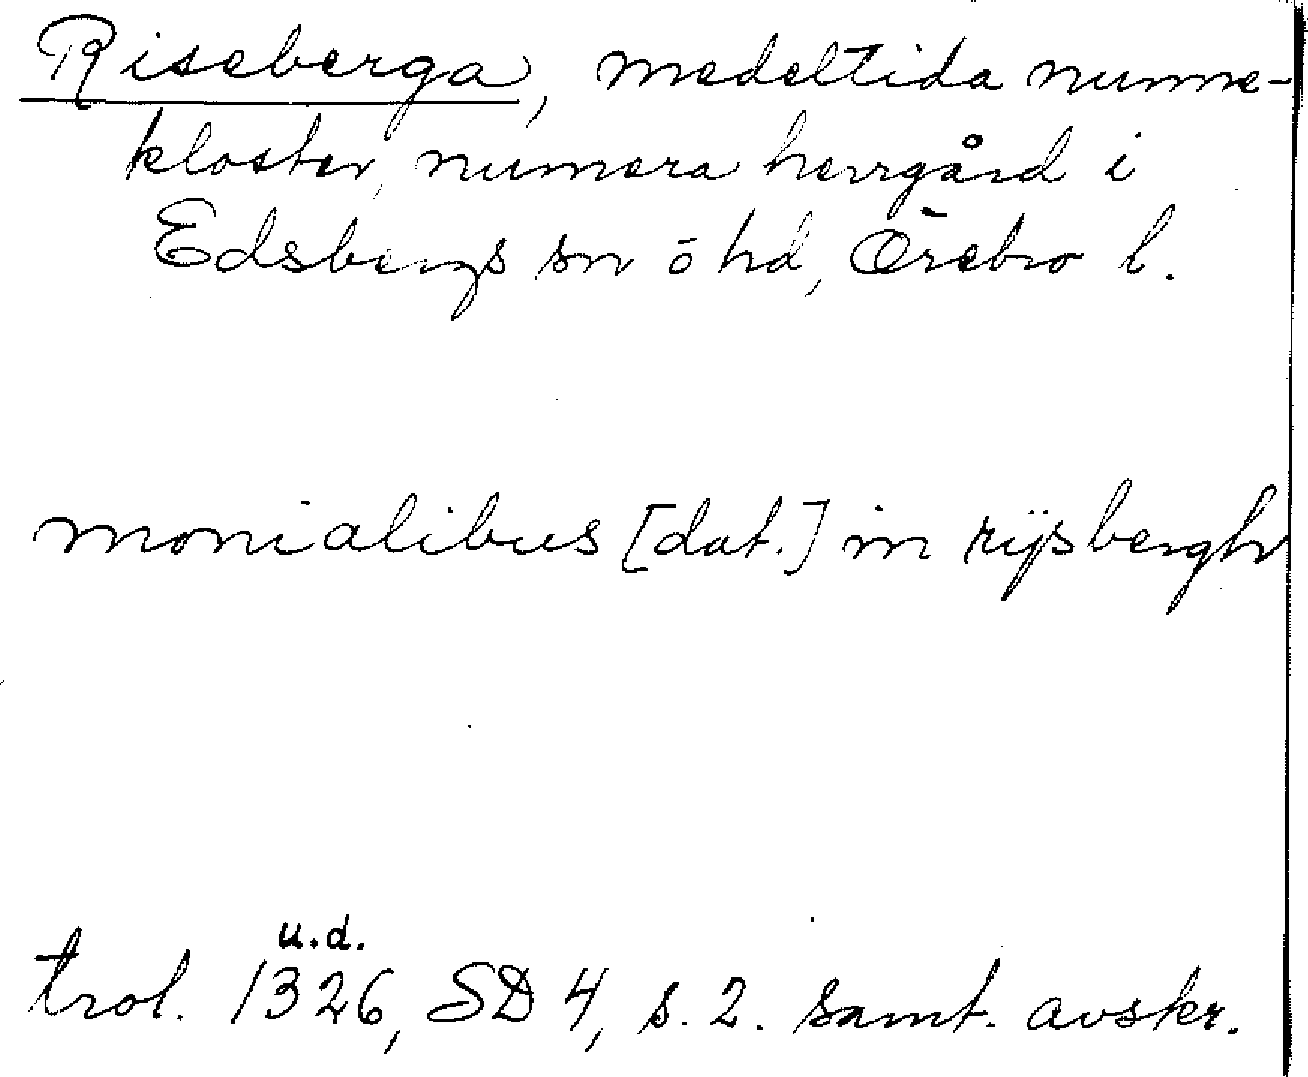 Riseberga, medeltida nunne-
kloster, numera herrgård i
Edsbergs sn o hd, Örebro l.
monialibus [dat.] in rijsbergh
u.d.
trol. 1326, SD 4, s. 2. samt. avskr.